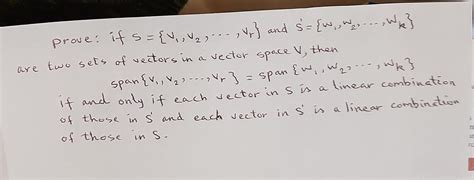 prove: if S = {v₁, v₂, ..., vᵣ} and S' = {w₁, w₂, ..., wₖ}
are two sets of vectors in a vector space V, then
span{v₁, v₂, ..., vᵣ} = span{w₁, w₂, ..., wₖ}
if and only if each vector in S is a linear combination
of those in S' and each vector in S' is a linear combination
of those in S.